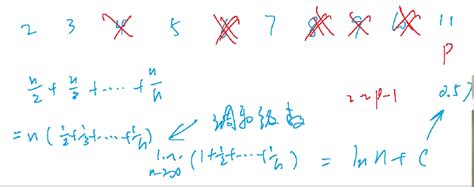 2 3 4 5 6 7 8 9 10 11
p
n/2 + n/3 + ⋯ + n/n
2~p-1
0.57
= n (1/2 + 1/3 + ⋯ + 1/n)
调和级数
lim n→∞ (1 + 1/2 + ⋯ + 1/n) = ln n + C